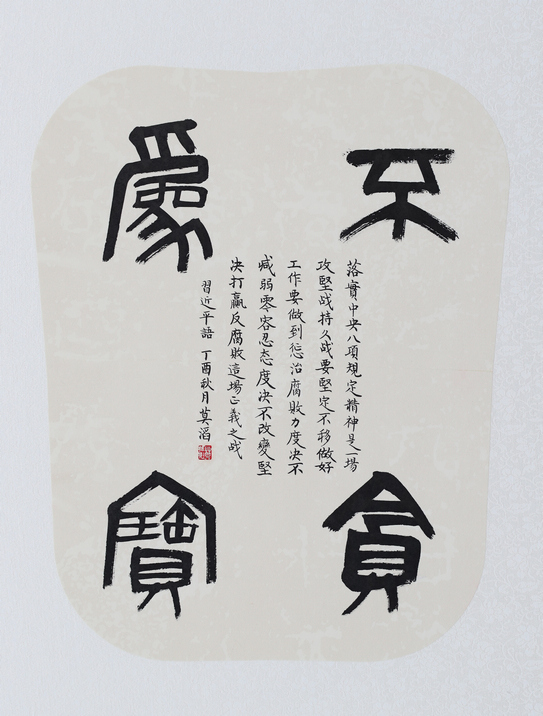 不貪
為寶
落實中央八項規定精神是一場
攻堅战持久战要堅定不移做好
工作要做到惩治腐敗力度决不
减弱零容忍态度决不改變堅
决打赢反腐敗這場正義之战
習近平語 丁酉秋月莫滔